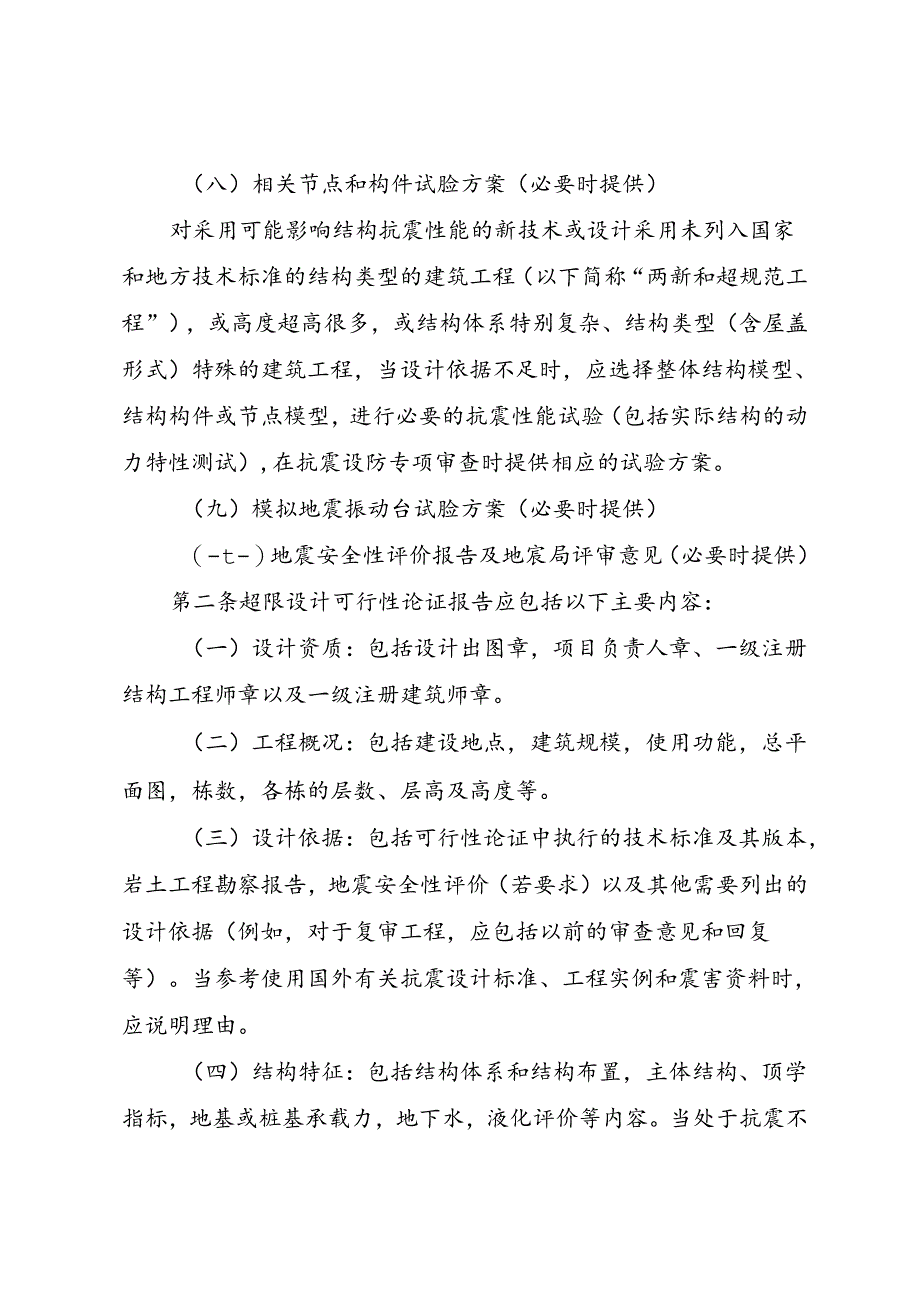 （八）相关节点和构件试验方案（必要时提供）
对采用可能影响结构抗震性能的新技术或设计采用未列入国家
和地方技术标准的结构类型的建筑工程（以下简称“两新和超规范工
程”），或高度超高很多，或结构体系特别复杂、结构类型（含屋盖
形式）特殊的建筑工程，当设计依据不足时，应选择整体结构模型、
结构构件或节点模型，进行必要的抗震性能试验（包括实际结构的动
力特性测试）,在抗震设防专项审查时提供相应的试验方案。
（九）模拟地震振动台试验方案（必要时提供）
(-t-)地震安全性评价报告及地宸局评审意见（必要时提供）
第二条超限设计可行性论证报告应包括以下主要内容：
（一）设计资质：包括设计出图章，项目负责人章、一级注册
结构工程师章以及一级注册建筑师章。
（二）工程概况：包括建设地点，建筑规模，使用功能，总平
面图，栋数，各栋的层数、层高及高度等。
（三）设计依据：包括可行性论证中执行的技术标准及其版本，
岩土工程勘察报告，地震安全性评价（若要求）以及其他需要列出的
设计依据（例如，对于复审工程，应包括以前的审查意见和回复
等）。当参考使用国外有关抗震设计标准、工程实例和震害资料时，
应说明理由。
（四）结构特征：包括结构体系和结构布置，主体结构、顶学
指标，地基或桩基承载力，地下水，液化评价等内容。当处于抗震不